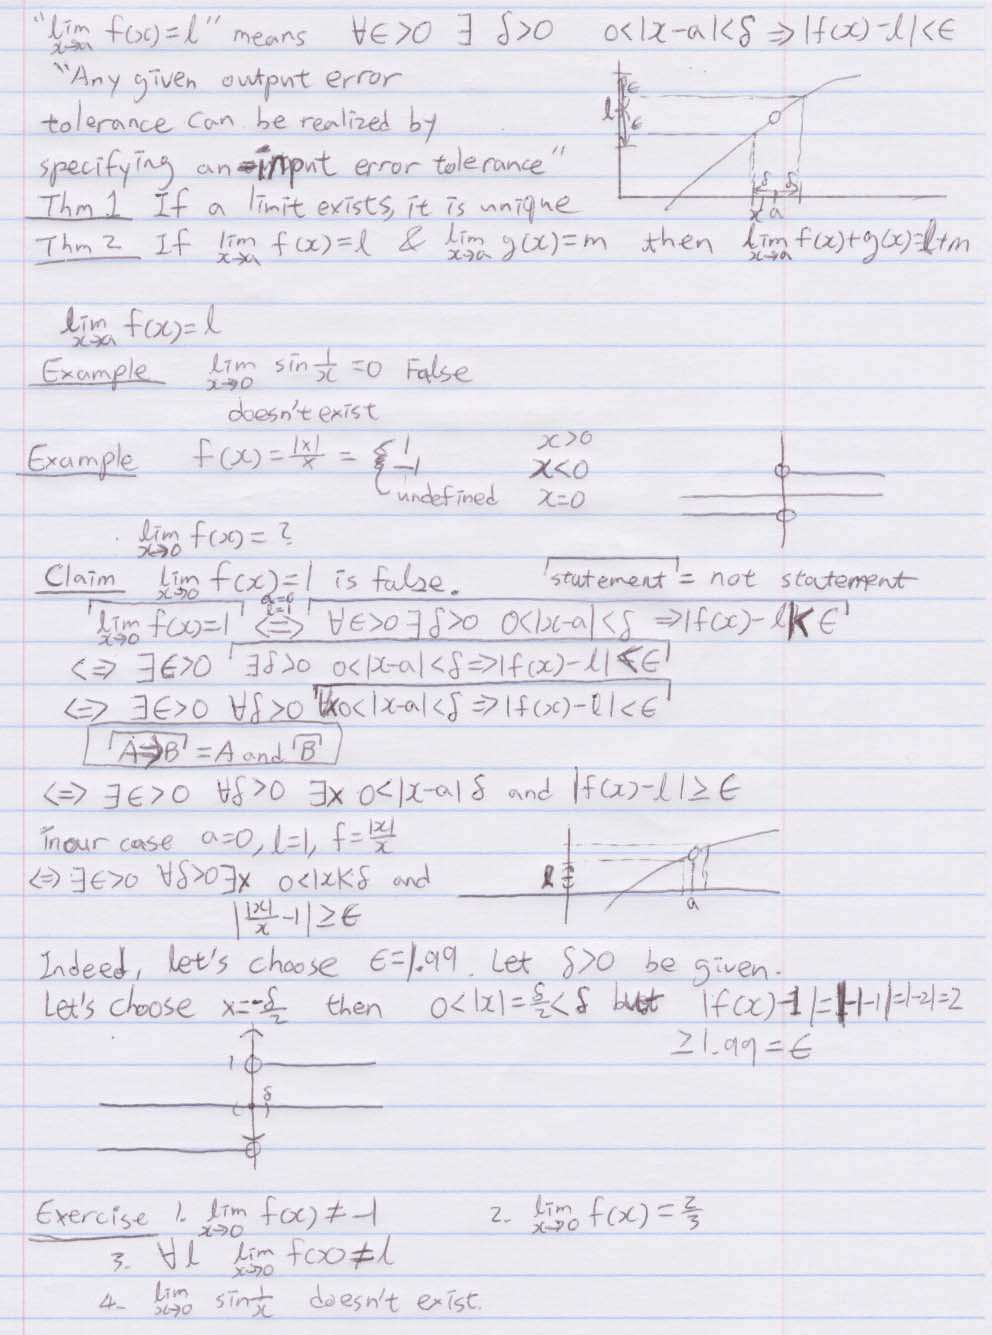 "lim x→a f(x)=l" means ∀ε>0 ∃ δ>0 0<|x-a|<δ ⇒|f(x)-l|<ε
"Any given output error
tolerance can be realized by
specifying an input error tolerance"
l ε ε δ δ x a
Thm 1 If a limit exists, it is unique
Thm 2 If lim x→a f(x)=l & lim x→a g(x)=m then lim x→a f(x)+g(x)=l+m
lim x→a f(x)=l
Example lim x→0 sin 1/x =0 False
doesn't exist
Example f(x)=|x|/x = { 1 x>0
-1 x<0
undefined x=0
lim x→0 f(x)=?
Claim lim x→0 f(x)=1 is false. ⌈statement⌉= not statement
⌈lim x→0 f(x)=1⌉ a=0 l=1 <=> ⌈∀ε>0 ∃δ>0 0<|x-a|<δ ⇒|f(x)-l|<ε⌉
<=> ∃ε>0 ⌈∃δ>0 0<|x-a|<δ⇒|f(x)-l|<ε⌉
<=> ∃ε>0 ∀δ>0 ⌈∀x 0<|x-a|<δ ⇒|f(x)-l|<ε⌉
⌈A⇒B⌉ = A and ⌈B⌉
<=> ∃ε>0 ∀δ>0 ∃x 0<|x-a| δ and |f(x)-l|≥ε
in our case a=0, l=1, f=|x|/x
<=> ∃ε>0 ∀δ>0 ∃x 0<|x|<δ and
||x|/x -1|≥ε
l a
Indeed, let's choose ε=1.99. Let δ>0 be given.
Let's choose x=-δ/2 then 0<|x|=δ/2<δ but |f(x)-1|=|-1-1|=|-2|=2
≥1.99=ε
1 δ
Exercise 1. lim x→0 f(x)≠-1 2. lim x→0 f(x)=2/3
3. ∀l lim x→0 f(x)≠l
4. lim x→0 sin 1/x doesn't exist.